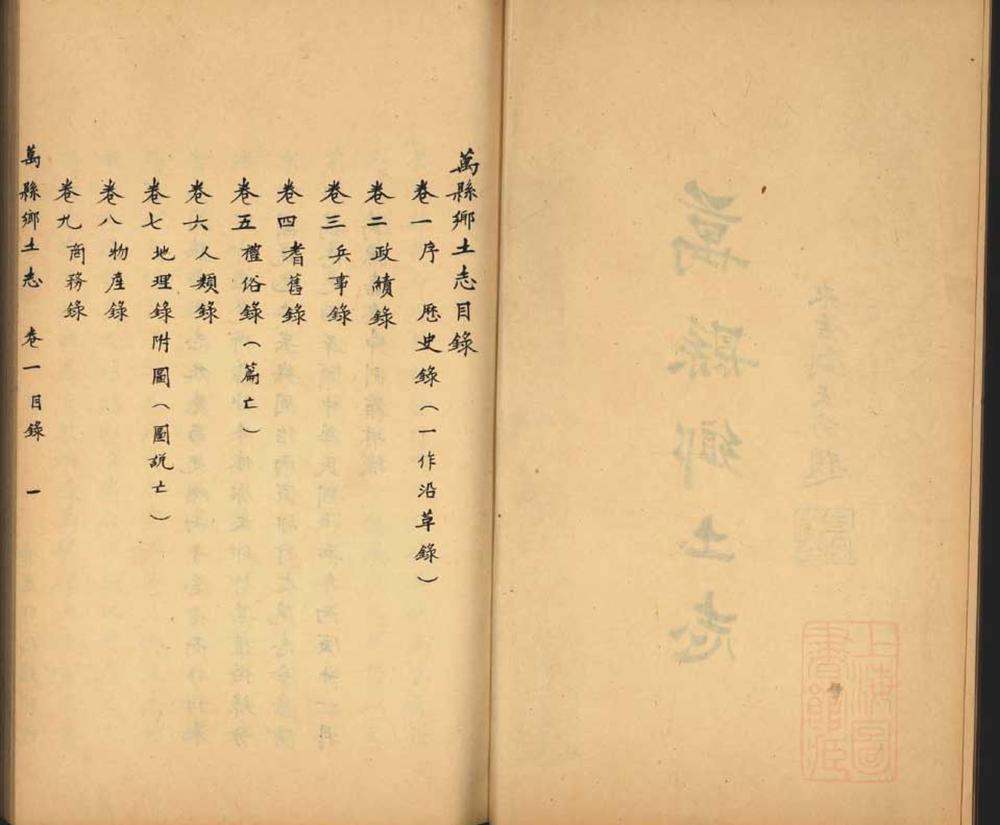 萬縣鄉土志
上海圖
書館藏
萬縣鄉土志目錄
卷一序 歷史錄（一作沿革錄）
卷二政績錄
卷三兵事錄
卷四耆舊錄
卷五禮俗錄（篇亡）
卷六人類錄
卷七地理錄附圖（圖說亡）
卷八物產錄
卷九商務錄
萬縣鄉土志 卷一目錄 一